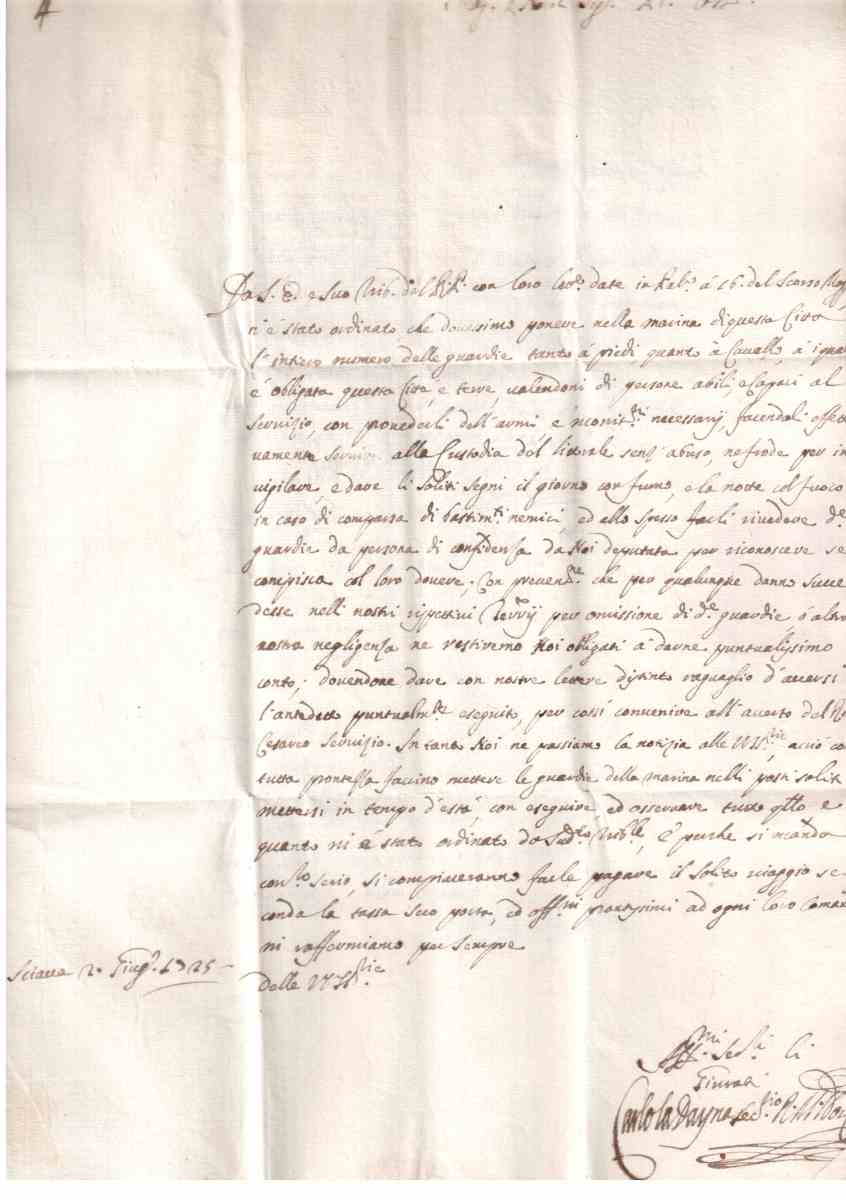 4
Da S. E. e suo Trib. del R. P. con loro lre date in Pal.º á 16. del scorso Magg
ni é stato ordinato che dovessimo ponere nella marina di questa Città
l'intiero numero delle guardie tanto á piedi, quanto à Cavallo, à i quali
é obligata questa Città, e terre, valendoni di persone abili, e Capaci al
servizio, con provederli dell'armi e monit.ni necessarij, facendoli effetti
vamente servire alla Custodia del littorale senz'abuso, ne frode per in
vigilare, e dare li soliti segni il giorno con fumo, e la notte col fuoco
in caso di comparsa di bastim.ti nemici, ed allo spesso farli rivedere d.e
guardie da persona di confidenza da Noi deputata per riconoscere se
compisca col loro dovere; Con prevenz.ne che per qualunque danno succe
desse nelli nostri rispettivi Terr.rij per omissione di d.e guardie, ó altra
nostra negligenza ne restiremo Noi obligati á darne puntualissimo
conto; dovendone dare con nostre lettere distinto raguaglio d'aversi
l'antedetto puntualm.te eseguito, per cossí convenire all'acerto del R.
Cesareo Servizio. In tanto Noi ne passiamo la notizia alle VV.SS.rie, acció con
tutta prontezza faccino mettere le guardie della marina nelli posti solit
mettersi in tempo d'està, con eseguire ed osservare tutto q.llo e
quanto ni é stato ordinato da sud.to Trib.le, E perche si manda
con.lo serio, si compiaceranno farle pagare il solito viaggio se
conda la tassa seco porta, ed off.mi prontissimi ad ogni loro Coman
ni raffermiamo per sempre
delle VV.SS.rie
Sciacca 2. Giug.º 1725
Aff.mi Ser.li li
Giurati
Carlo la Dayna